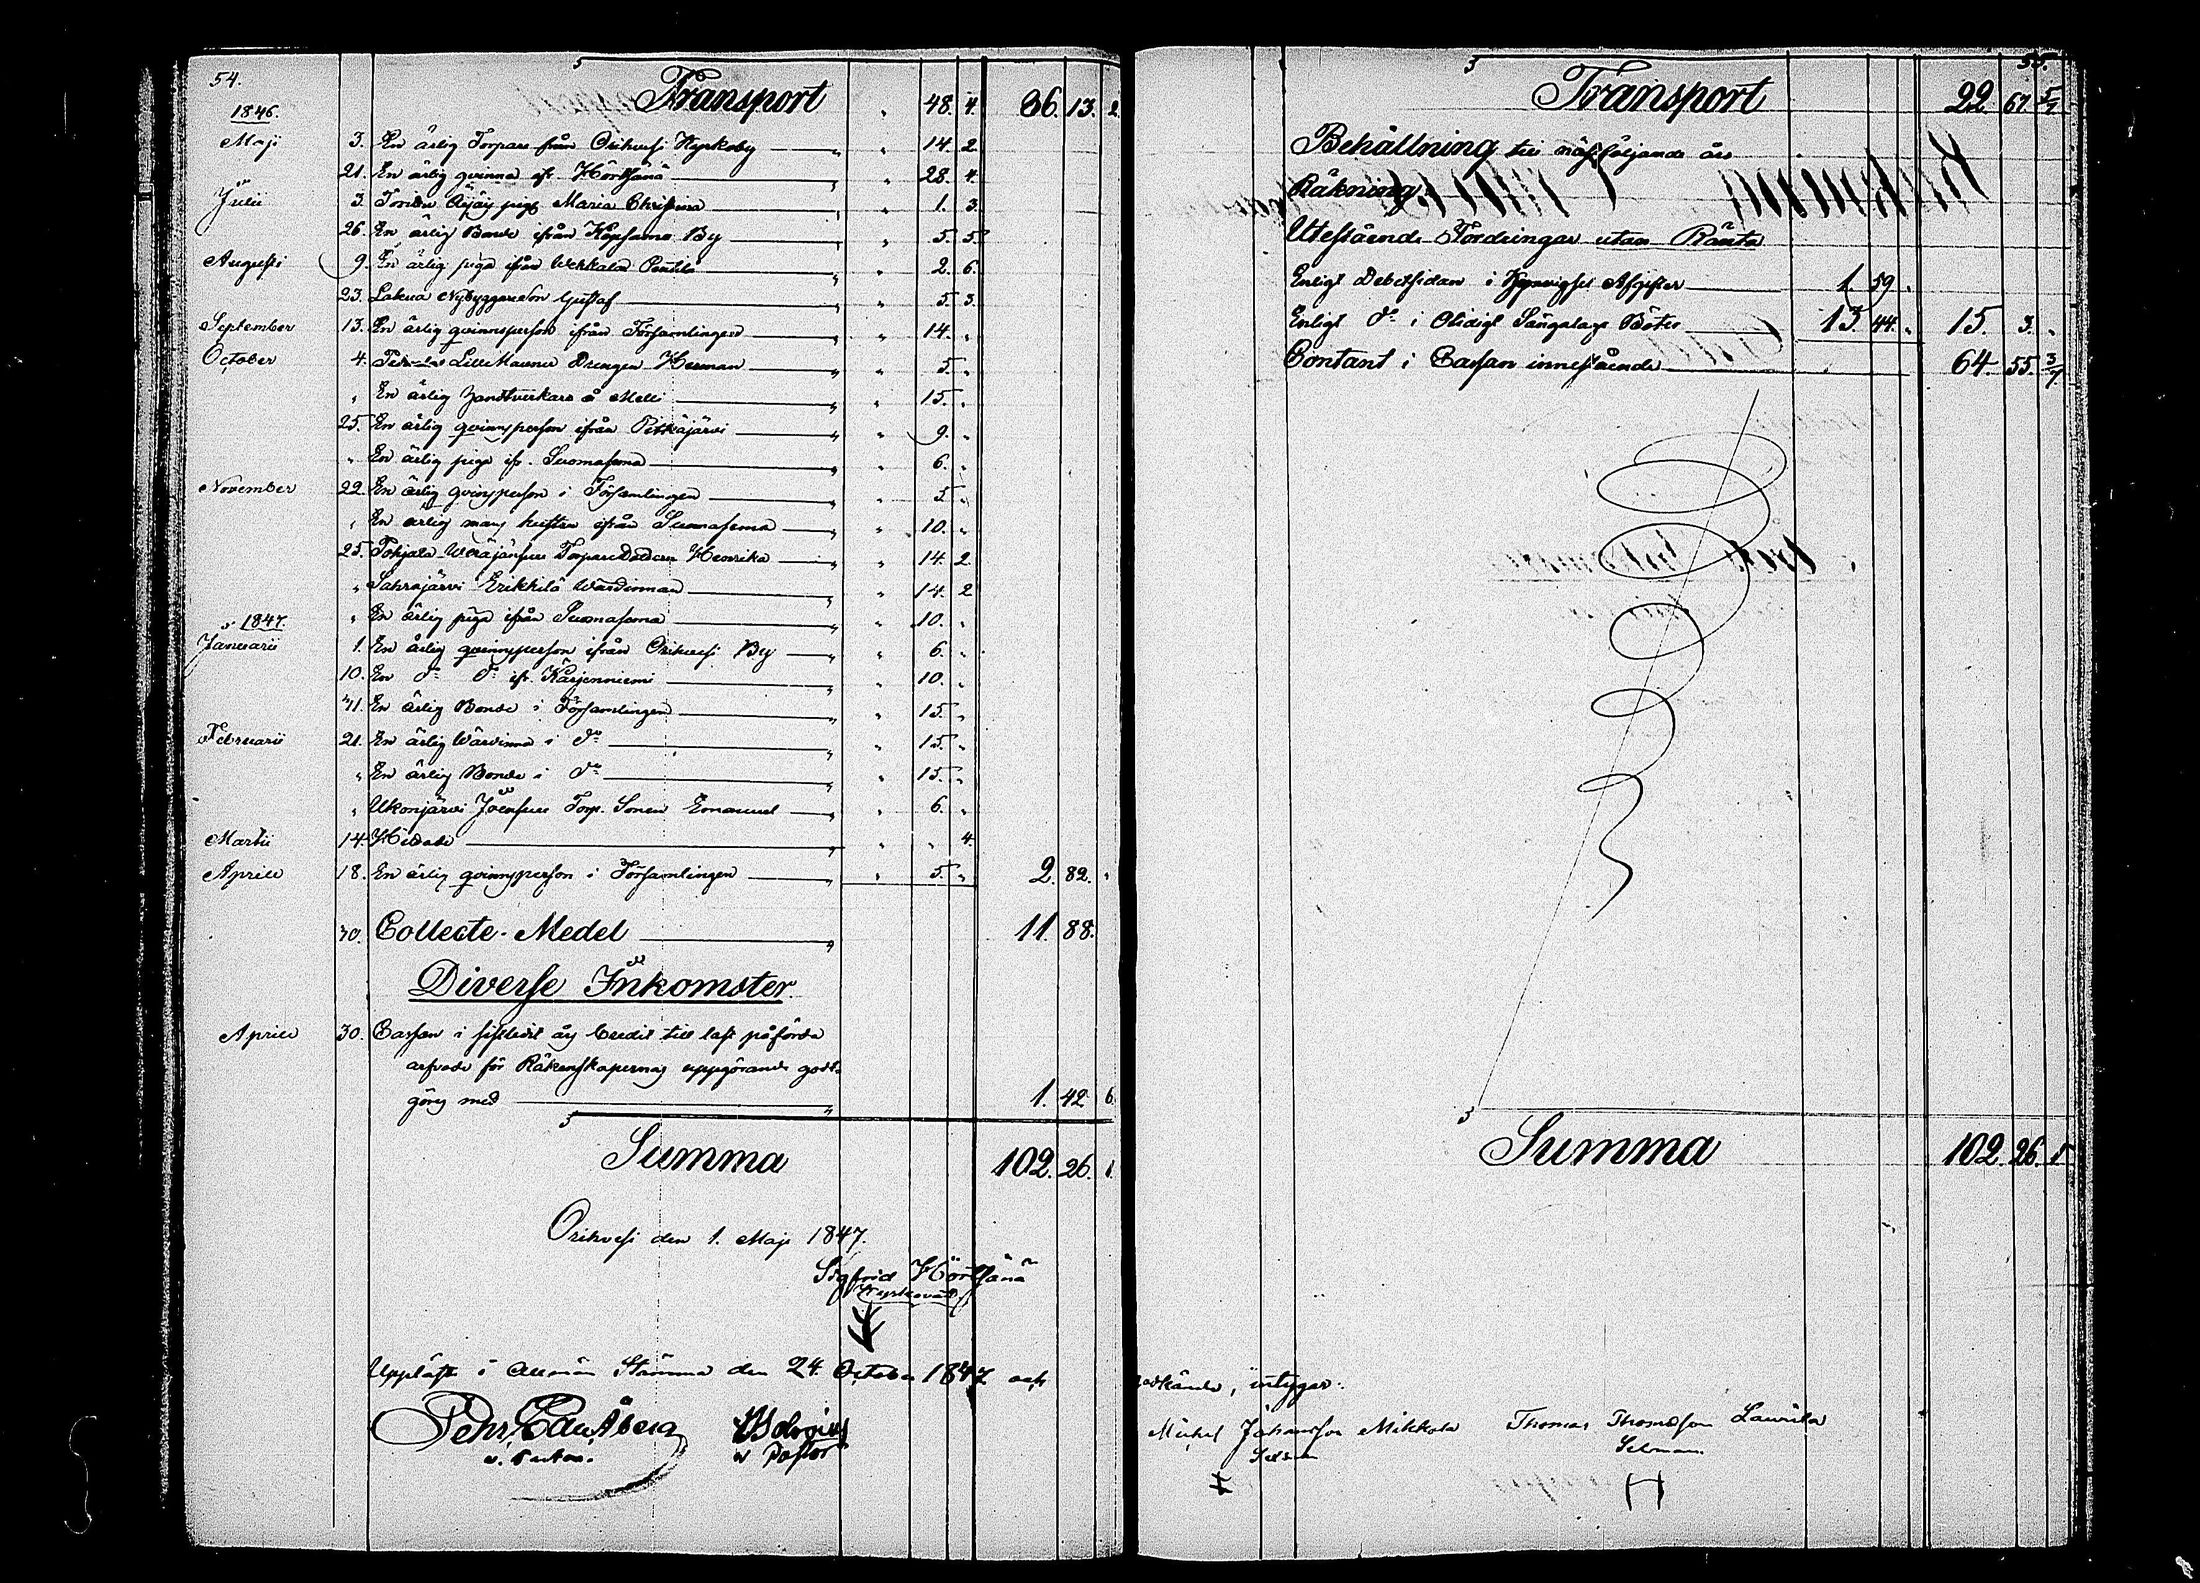 54.
Transport " 48. 4. 86. 13. 2.
1846.
Maji 3. En ärlig Torpare från Orihvesi Kyrkoby " " 14. 2
21. En ärlig qvinna ifr. Hörtsänä " " 28. 4.
Julii 3. Maria " 1. 3.
26. En ärlig Bonde ifrån By " " 5. 5.
Augusti 9. En ärlig piga ifrån Wekkala Penttilä " " 2. 6.
23. Nybyggareson Gustaf " " 5. 3.
September 13. En ärlig qvinnsperson ifrån Församlingen " " 14. "
October 4. Lille Drengen Herman " " 5. "
" En ärlig Handtverkare å " " 15. "
25. En ärlig qvinnsperson ifrån Pitkäjärvi " " 9. "
" En ärlig piga ifr. Suomasema " " 6. "
November 22. En ärlig qvinsperson i Församlingen " " 5. "
" En ärlig mans hustru ifrån Suomasema " " 10. "
25. Pohjala Torpare Henrika " " 14. 2
" Sahrajärvi Erikkilä Wärdinnan " " 14. 2
" En ärlig piga ifrån Suomasema " " 10. "
1847.
Januarii 1. En ärlig qvinnsperson ifrån Orihvesi By " " 6. "
10. En do do ifr. Kärjenniemi " " 10. "
31. En ärlig Bonde i Församlingen " " 15. "
Februarii 21. En ärlig Wärdinna i do " " 15. "
" En ärlig Bonde i do " " 15. "
" Ukonjärvi Torp. Sonen Emanuel " " 6. "
Martii 14. Hittade " " 4.
Aprill 18. En ärlig qvinnsperson i Församlingen " " 5. " 2. 82. "
30. Collecte-Medel " 11. 88.
Diverse Inkomster
Aprill 30. Cassan i sistledit års Credit till last påförde
arfvode för Räkenskapernas uppgörande godt-
görs med " 1. 42 6.
Summa 102. 26. 1.
Orihvesi den 1. Maji 1847.
Sigfrid Hörtsänä
Kyrkovärd
Uppläst i Allmän Stämma den 24. October 1847 och
Pehr Edv. Åberg
v. Pastor.
v Pastor
55.
Transport 22. 67. 5/7
Behållning till näst följande års
Räkning.
Utestående Fordringar utan Ränta
Enligt Debetsidan i Afgifter 1. 59. "
Enligt do i Otidigt Sängalags Böter 13. 44. " 15. 3. "
Contant i Cassan innestående 64. 55. 3/7
Summa 102. 26. 1
godkände, intygar:
Michel Johansson Mikkola Thomas Thomasson Laurila
Sexman Sexman.
H